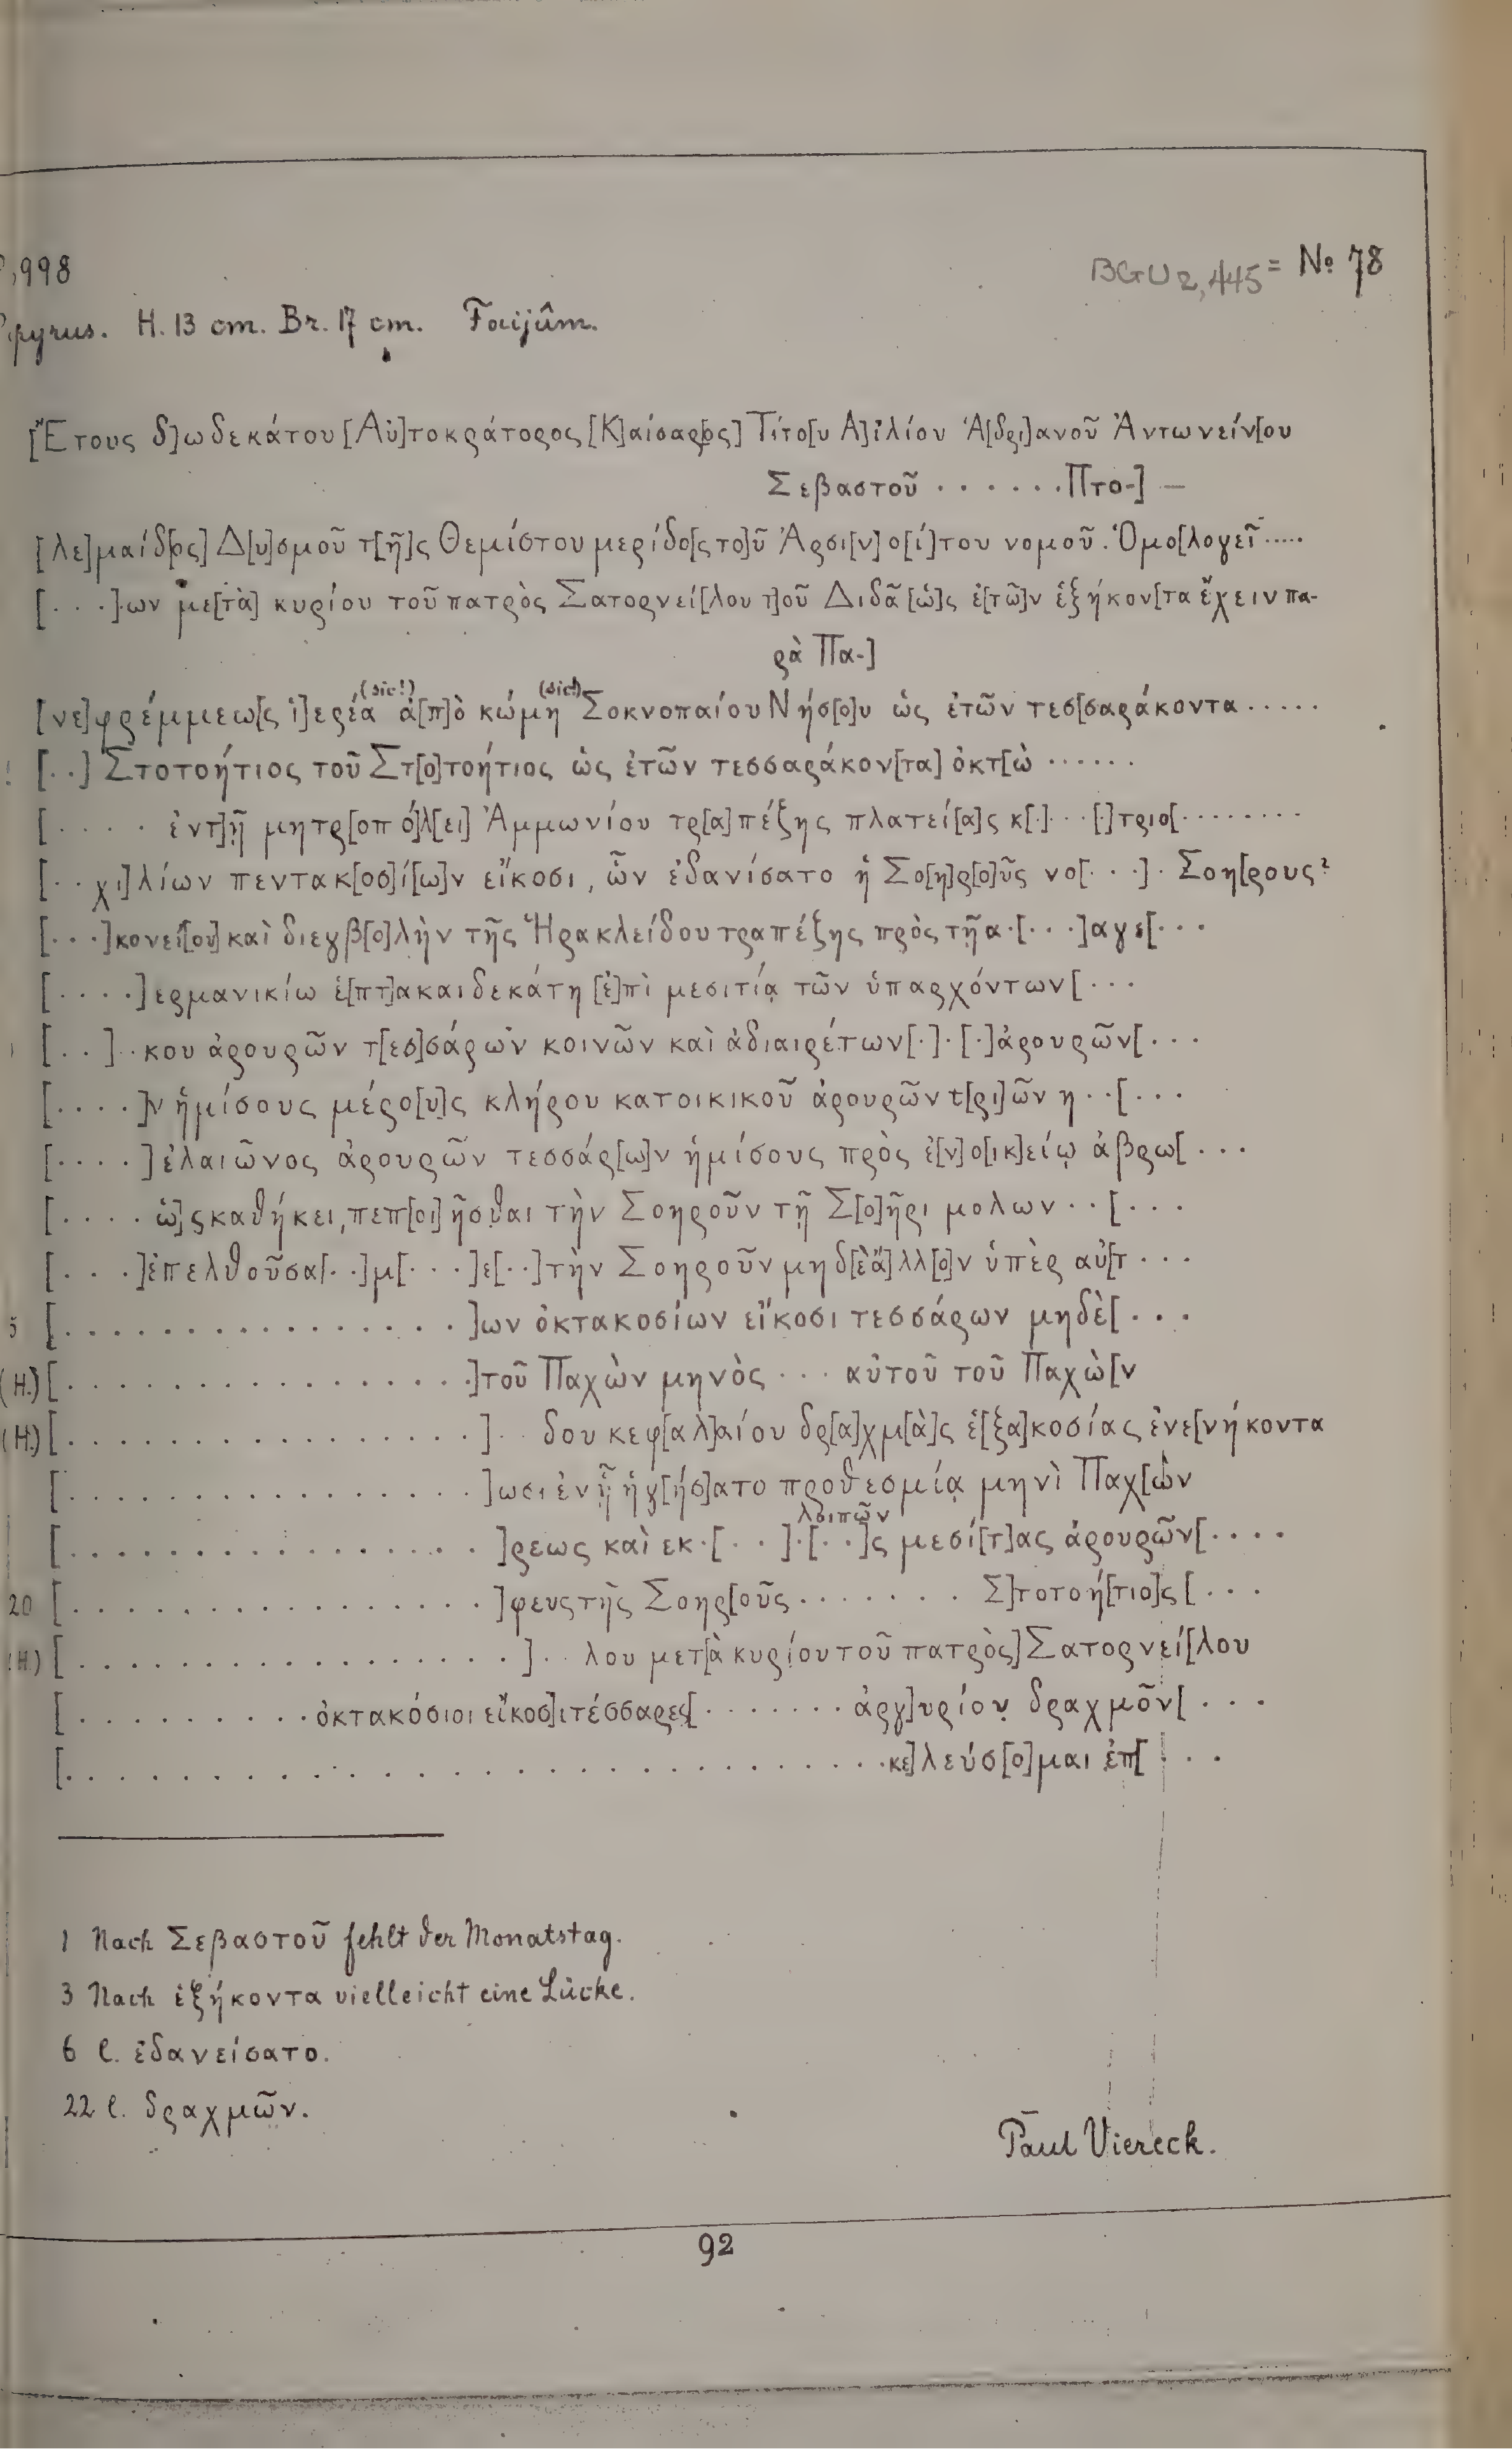 P,998
BGU 2,445 = No 78
Papyrus. H. 13 cm. Br. 17 cm. Faijûm.
[Ἔτους δ]ωδεκάτου [Αὐ]τοκράτορος [Κ]αίσαρ[ος] Τίτο[υ Α]ἰλίου Ἁ[δρι]ανοῦ Ἀντωνείν[ου
Σεβαστοῦ · · · · · · Πτο-] —
[λε]μαίδ[ος] Δ[υ]σμοῦ τ[ῆ]ς Θεμίστου μερίδο[ς το]ῦ Ἀρσι[ν]ο[ί]του νομοῦ. Ὁμο[λογεῖ · · · · ·
[· · ·]ων με[τὰ] κυρίου τοῦ πατρὸς Σατορνεί[λου τ]οῦ Διδᾶ [ὡ]ς ἐ[τῶ]ν ἑξήκον[τα ἔχειν πα-
ρὰ Πα-]
[νε]φρέμμεω[ς ἱ]ερέα (sic!) ἀ[π]ὸ κώμη (sic!) Σοκνοπαίου Νήσ[ο]υ ὡς ἐτῶν τεσ[σαράκοντα · · · · ·
[· ·] Στοτοήτιος τοῦ Στ[ο]τοήτιος ὡς ἐτῶν τεσσαράκον[τα] ὀκτ[ὼ · · · · · ·
[· · · · · ἐν τ]ῇ μητρ[οπ όλ[ει] Ἀμμωνίου τρ[α]πέζης πλατεί[α]ς κ[·] · · · [·]τριο[· · · · · · · ·
[· · χι]λίων πεντακ[οσ]ί[ω]ν εἴκοσι, ὧν ἐδανίσατο ἡ Σο[η]ρ[ο]ῦς νο[· · ·] · Σοη[ρους?
[· · ·]κονεί[ου] καὶ διεγβ[ο]λὴν τῆς Ἡρακλείδου τραπέζης πρὸς τῇ α · [· · ·]αγε[· · ·
[· · · ·]ερμανικίω ἑ[πτ]ακαιδεκάτη [ἐ]πὶ μεσιτίᾳ τῶν ὑπαρχόντων[· · ·
[· ·] · · κου ἀρουρῶν τ[εσ]σάρων κοινῶν καὶ ἀδιαιρέτων[·] · [·]ἀρουρῶν[· · ·
[· · · ·]ν ἡμίσους μέρο[υ]ς κλήρου κατοικικοῦ ἀρουρῶν τ[ρι]ῶν η · · [· · ·
[· · · ·]ἐλαιῶνος ἀρουρῶν τεσσάρ[ω]ν ἡμίσους πρὸς ἐ[ν]ο[ικ]είῳ ἀβρω[· · ·
[· · · · ὡ]ς καθήκει, πεπ[οι]ῆσθαι τὴν Σοηροῦν τῇ Σ[ο]ῆρι μολων · · [· · ·
[· · ·]ἐπελθοῦσα[· ·]μ[· · ·]ε[· ·]τὴν Σοηροῦν μηδ[ὲ ἄ]λλ[ο]ν ὑπὲρ αὐ[τ · · ·
5 [· · · · · · · · · · · · · · · ·]ων ὀκτακοσίων εἴκοσι τεσσάρων μηδὲ[· · ·
(H.) [· · · · · · · · · · · · · · · ·]τοῦ Παχὼν μηνὸς · · · αὐτοῦ τοῦ Παχὼ[ν
(H.) [· · · · · · · · · · · · · · · ·] · · δου κεφ[αλ]αίου δρ[α]χμ[ὰ]ς ἑ[ξα]κοσίας ἐνε[νήκοντα
[· · · · · · · · · · · · · · · ·]ωσι ἐν ᾗ ἡγ[ήσ]ατο προθεσμίᾳ μηνὶ Παχ[ὼν
λοιπῶν
[· · · · · · · · · · · · · · · ·]ρεως καὶ εκ · [· ·] · [· ·]ς μεσί[τ]ας ἀρουρῶν[· · · ·
20 [· · · · · · · · · · · · · · · ·]φευς τῆς Σοηρ[οῦς · · · · · · · Σ]τοτοή[τιο]ς [· · ·
(H.) [· · · · · · · · · · · · · · · · ·] · · λου μετ[ὰ κυρίου τοῦ πατρὸς] Σατορνεί[λου
[· · · · · · · · · · ὀκτακόσιοι εἴκοσ]ι τέσσαρες[· · · · · · · ἀργ]υρίου δραχμõν[ · · ·
[· · · · · · · · · · · · · · · · · · · · · · · · · · · · · κε]λεύσ[ο]μαι ἐπ[ · · ·
1 Nach Σεβαστοῦ fehlt der Monatstag.
3 Nach ἑξήκοντα vielleicht eine Lücke.
6 l. ἐδανείσατο.
22 l. δραχμῶν.
Paul Viereck.
92